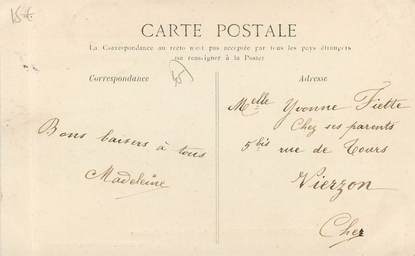 15 t.
CARTE POSTALE
La Correspondance au recto n'est pas acceptée par tous les pays étrangers
se renseigner à la Poste
Correspondance
Adresse
Bons baisers à tous
Madeleine
Melle Yvonne Fiette
Chez ses parents
5bis rue de Tours
Vierzon
Cher